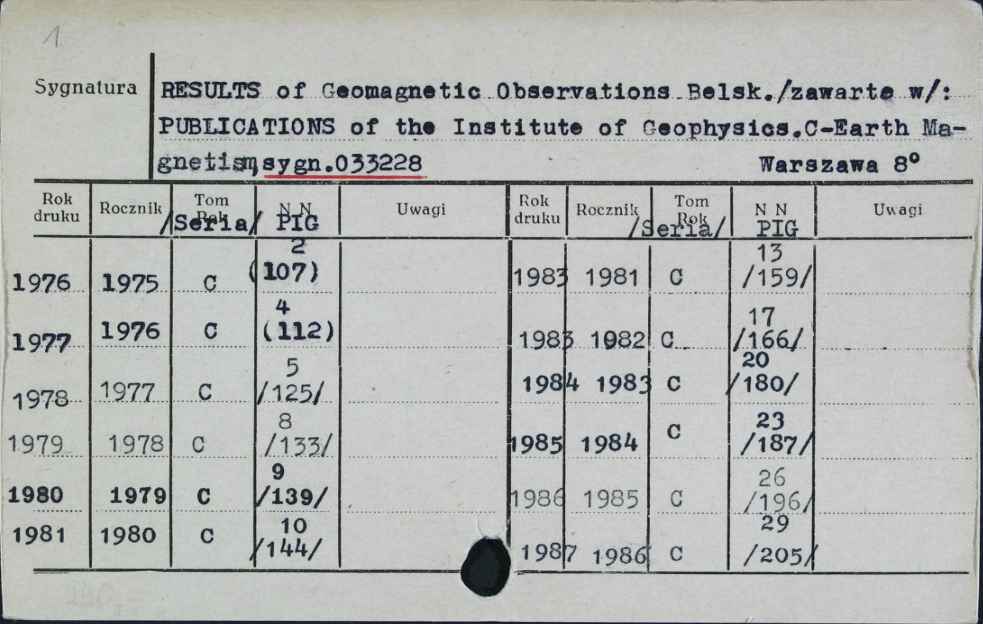 1
Sygnatura
RESULTS of Geomagnetic Observations Belsk./zawarte w/:
PUBLICATIONS of the Institute of Geophysics.C-Earth Ma-
gnetism,sygn.033228 Warszawa 8°
Rok druku Rocznik Tom Rok /Seria/ N N PIG Uwagi Rok druku Rocznik Tom Rok /Seria/ N N PIG Uwagi
1976 1975 C 2 (107) 1983 1981 C 13 /159/
1977 1976 C 4 (112) 1983 1982 C 17 /166/
1978 1977 C 5 /125/ 1984 1983 C 20 /180/
1979 1978 C 8 /133/ 1985 1984 C 23 /187/
1980 1979 C 9 /139/ 1986 1985 C 26 /196/
1981 1980 C 10 /144/ 1987 1986 C 29 /205/